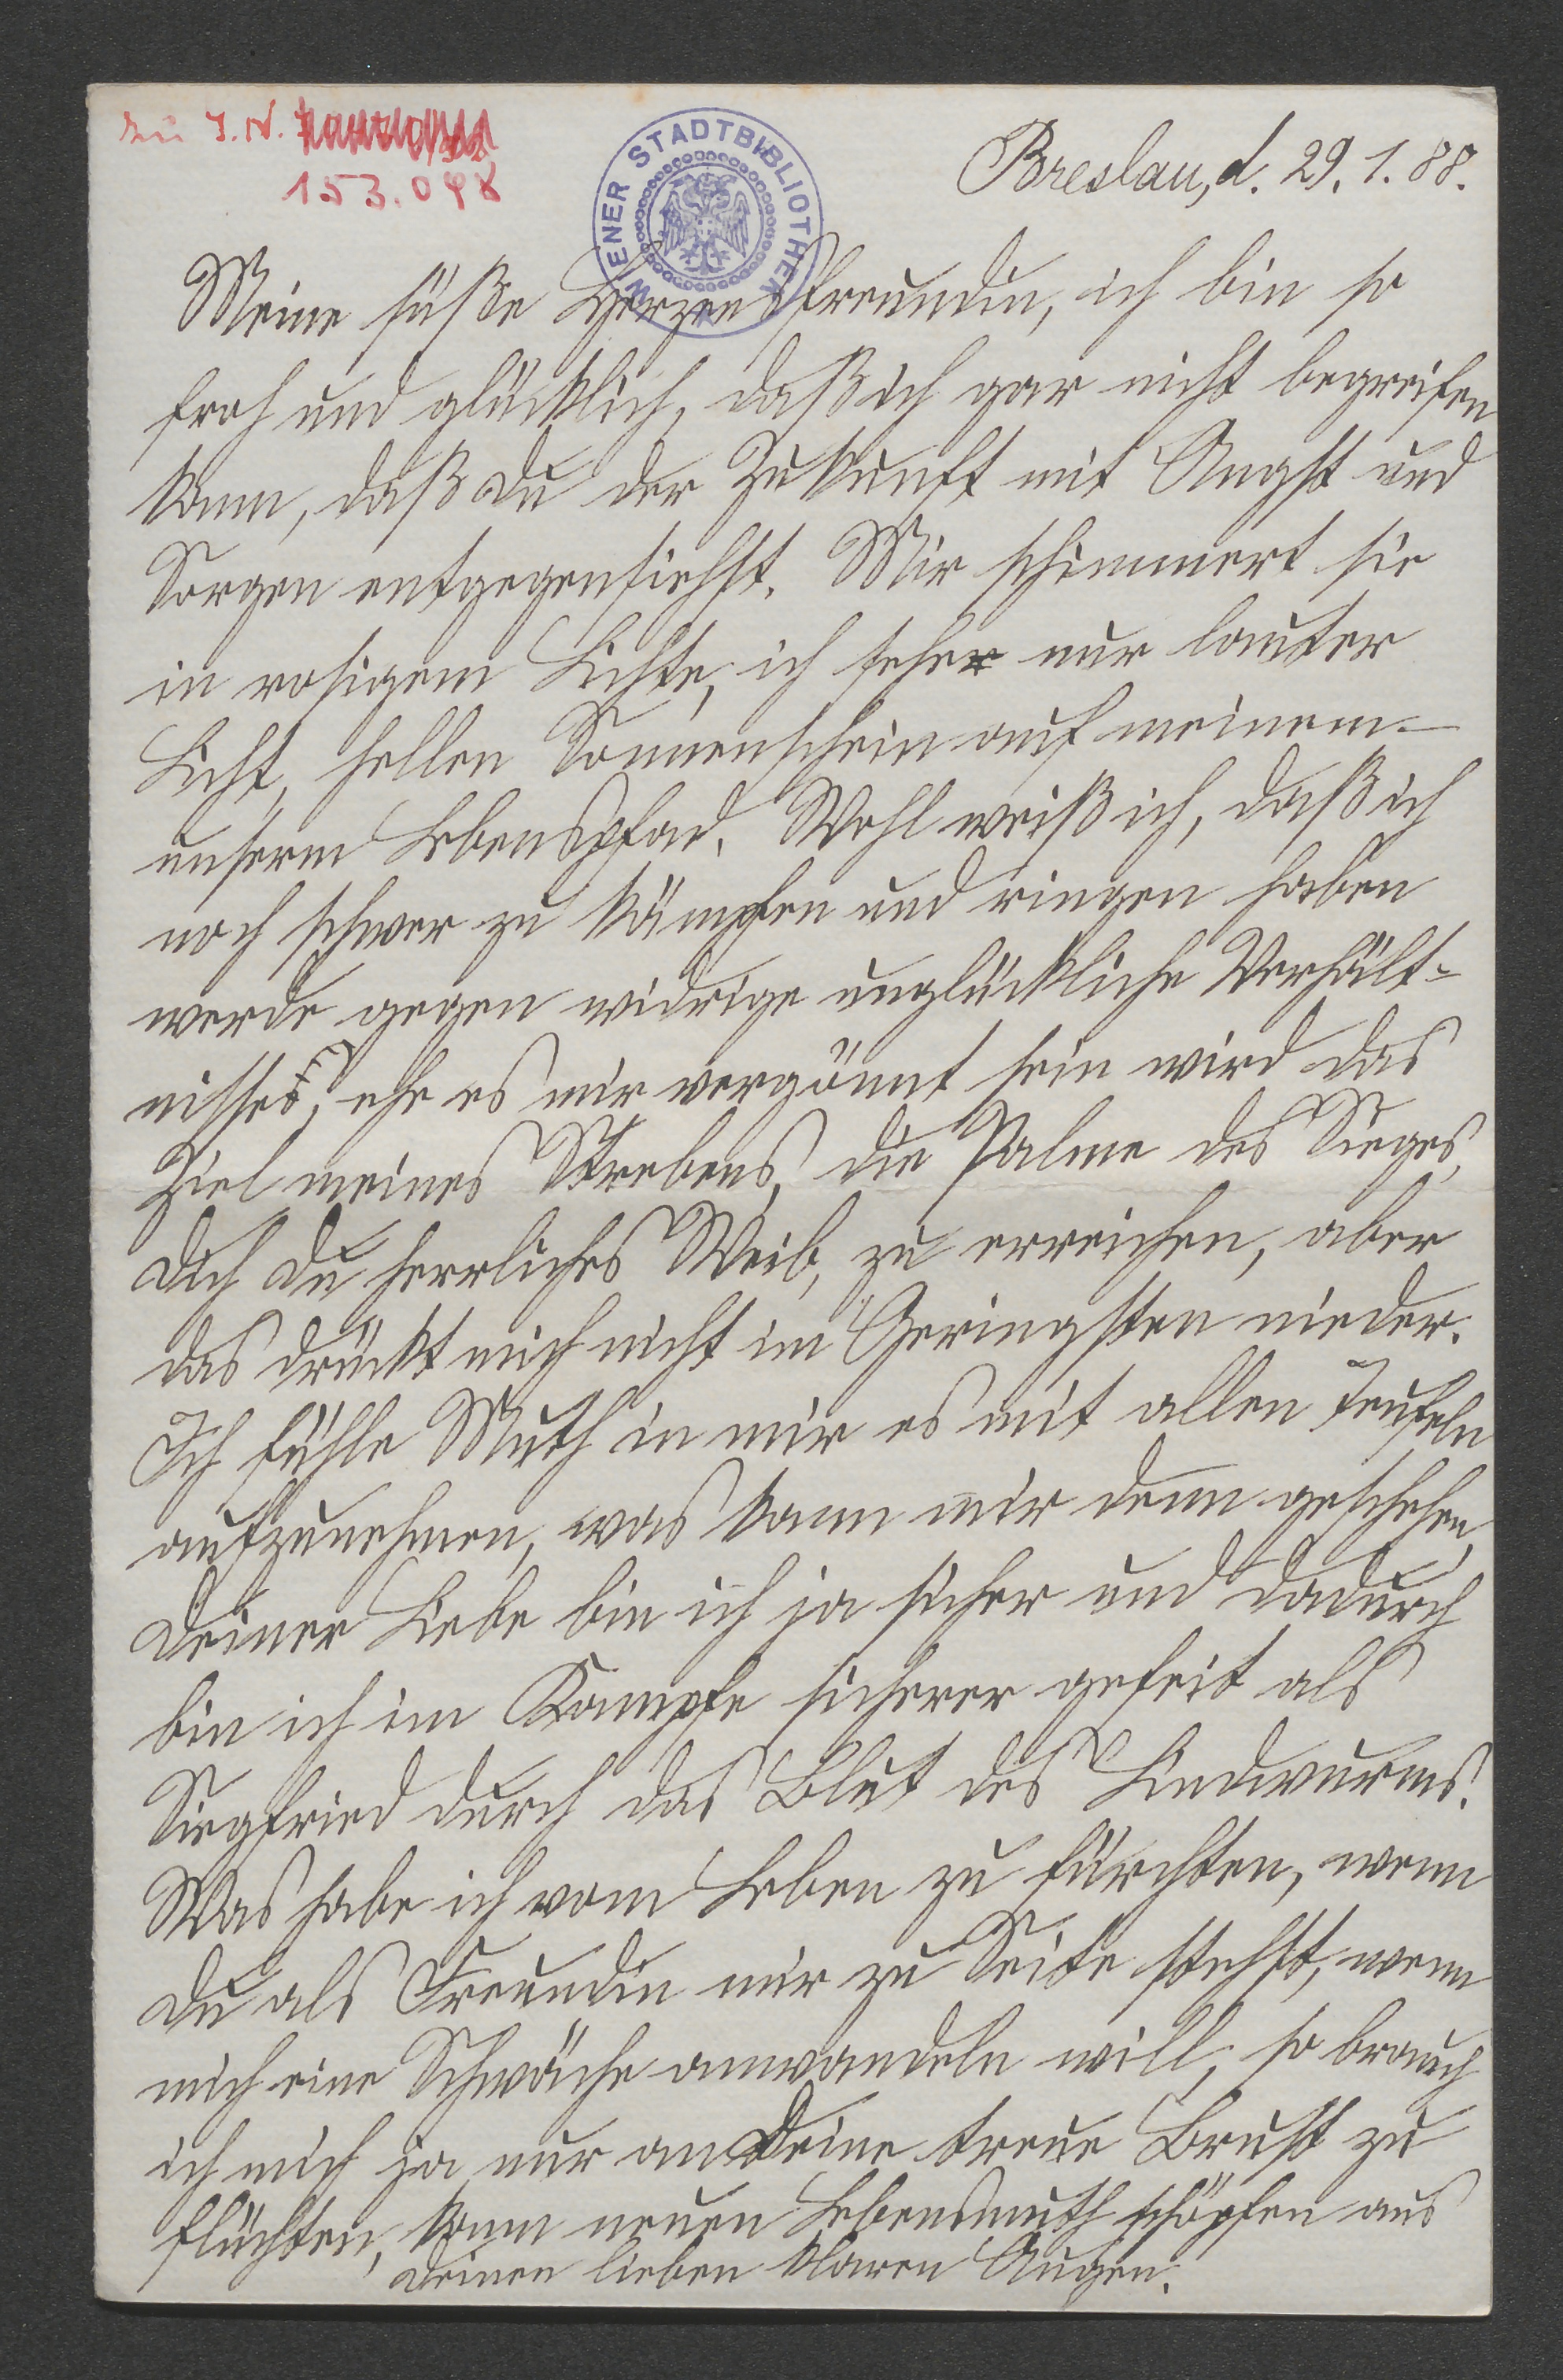 zu I.N.
153.098
WIENER STADTBIBLIOTHEK
Breslau, d. 29. 1. 88.
Meine süße Herzensfreundin, ich bin so
froh und glücklich, daß ich gar nicht begreifen
kann, daß Du der Zukunft mit Angst und
Sorgen entgegensiehst. Mir schimmert sie
in rosigem Lichte, ich sehe nur lauter
Licht, hellen Sonnenschein auf meinem –
unserm Lebenspfad. Wohl weiß ich, daß ich
noch schwer zu kämpfen und ringen haben
werde gegen widrige unglückliche Verhält-
nisse, ehe es mir vergönnt sein wird das
Ziel meines Strebens, die Palme des Sieges,
Dich Du herrliches Weib, zu erreichen, aber
das drückt mich nicht im Geringsten nieder.
Ich fühle Muth in mir es mit allen Teufeln
aufzunehmen, was kann mir denn geschehen,
Deiner Liebe bin ich ja sicher und dadurch
bin ich im Kampfe sicherer gefeit als
Siegfried durch das Blut des Lindwurms.
Was habe ich vom Leben zu fürchten, wenn
Du als Freundin mir zu Seite stehst, wenn
mich eine Schwäche anwandeln will, so brauch
ich mich ja nur an Deine treue Brust zu
flüchten, kann neuen Lebensmuth schöpfen aus
Deinen lieben klaren Augen.